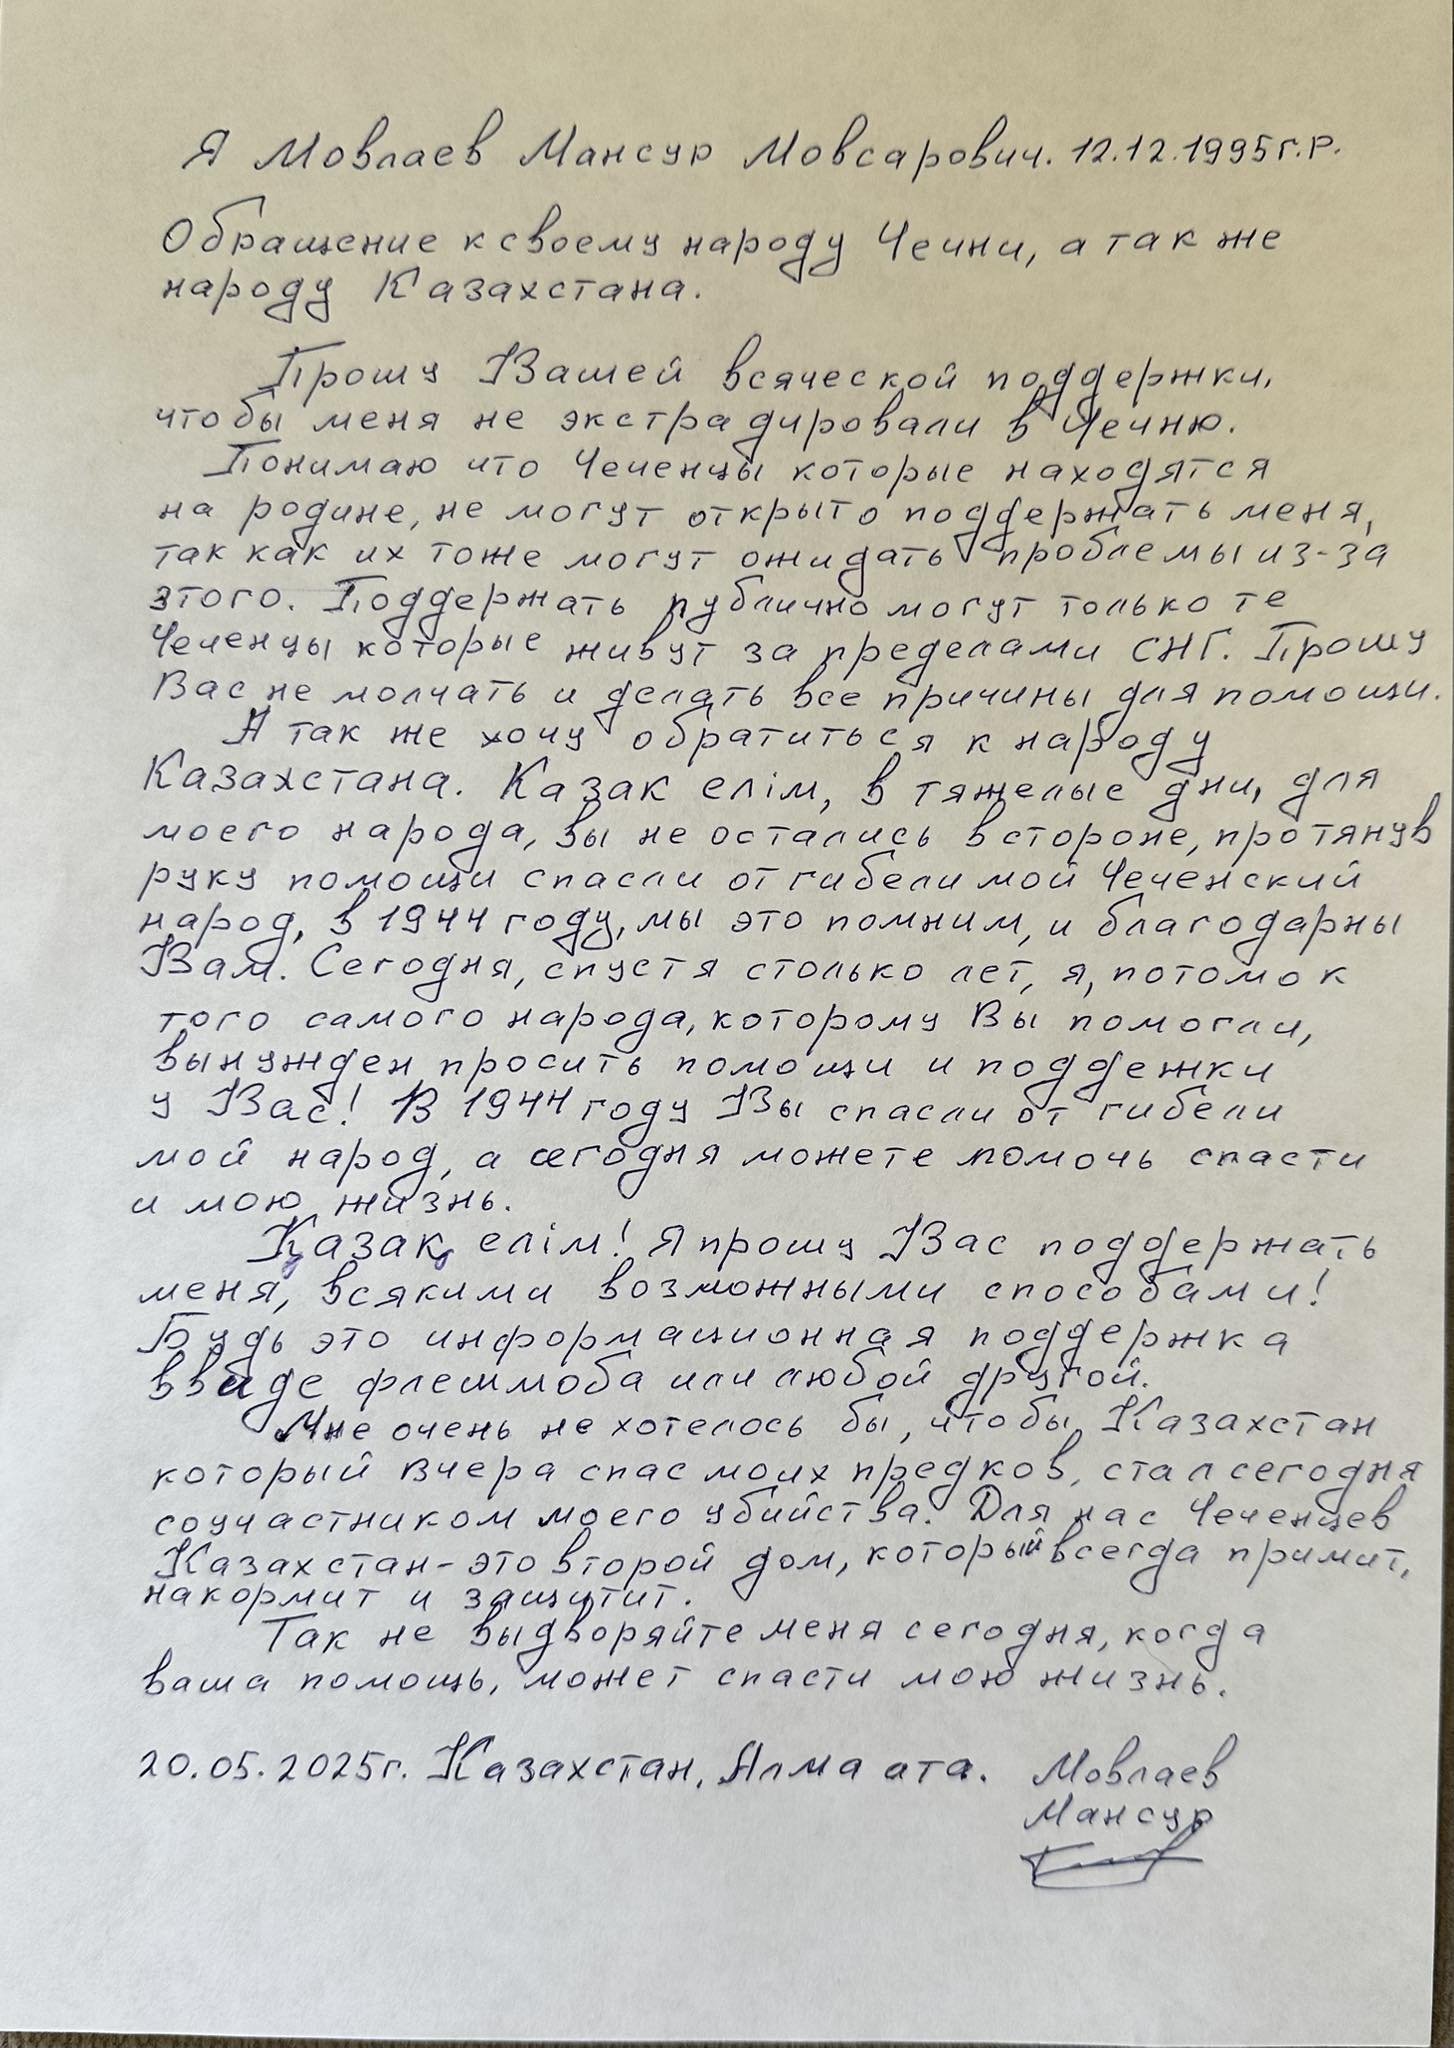 Я Мовлаев Мансур Мовсарович. 12.12.1995г.р.
Обращение к своему народу Чечни, а так же
народу Казахстана.
Прошу Вашей всяческой поддержки,
чтобы меня не экстрадировали в Чечню.
Понимаю что Чеченцы которые находятся
на родине, не могут открыто поддержать меня,
так как их тоже могут ожидать проблемы из-за
этого. Поддержать публично могут только те
Чеченцы которые живут за пределами СНГ. Прошу
Вас не молчать и делать все причины для помощи.
А так же хочу обратиться к народу
Казахстана. Казак елім, в тяжелые дни, для
моего народа, вы не остались в стороне, протянув
руку помощи спасли от гибели мой Чеченский
народ, в 1944 году, мы это помним, и благодарны
Вам. Сегодня, спустя столько лет, я, потомок
того самого народа, которому Вы помогли,
вынужден просить помощи и поддежки
у Вас! В 1944 году Вы спасли от гибели
мой народ, а сегодня можете помочь спасти
и мою жизнь.
Қазақ елім! Я прошу Вас поддержать
меня, всякими возможными способами!
Будь это информационная поддержка
в виде флешмоба или любой другой.
Мне очень не хотелось бы, чтобы Казахстан
который вчера спас моих предков, стал сегодня
соучастником моего убийства. Для нас Чеченцев
Казахстан - это второй дом, который всегда примит,
накормит и защитит.
Так не выдворяйте меня сегодня, когда
ваша помощь, может спасти мою жизнь.
20.05.2025г. Казахстан, Алма ата. Мовлаев
Мансур